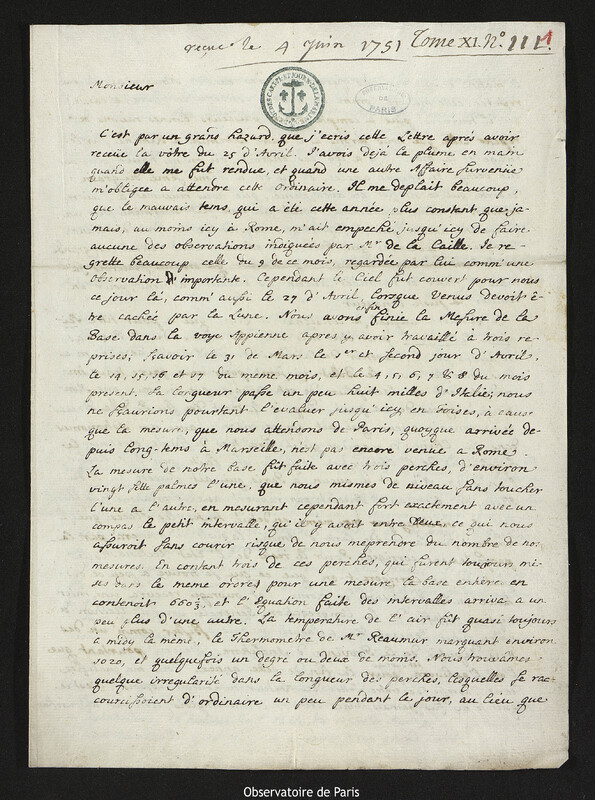 reçue le 4 Juin 1751 Tome XI. N.º 111. 1
Monsieur
DE
PARIS
C'est par un grans hazard, que j'ecris cette Lettre apres avoir
receüe la vôtre du 25 d'Avril. J'avois dejà la plume en main
quand elle me fut rendue, et quand une autre Affaire survenüe
m'obligea a attendre cette ordinaire. Il me deplait beaucoup,
que le mauvais tems, qui a été cette année plus constant que ja-
mais, au moins icy à Rome, m'ait empeché jusqu'icy de faire
aucune des observations indiquées par Mr de la Caille. Je re-
grette beaucoup celle du 9 de ce mois, regardée par lui comm'une
observation importante. Cependant le Ciel fut couvert pour nous
ce jour là, comm'aussi le 27 d'Avril, lorsque Venus devoit ê-
tre cachée par la Lune. Nous avons enfin finie la Mesure de la
Base dans la voye Appienne apres y avoir travaillé à trois re-
prises; sçavoir le 31 de Mars le 1er et second jour d'Avril,
le 14, 15, 16 et 17 du meme mois, et le 4, 5, 6, 7 & 8 du mois
present. Sa longueur passe un peu huit milles d'Italie; nous
ne sçaurions pourtant l'evaluer jusqu'icy en Toises, à cause
que la mesure, que nous attensons de Paris, quoyque arrivée de-
puis long-tems à Marseille, n'est pas encore venue a Rome.
La mesure de notre base fut faite avec trois perches, d'environ
vingt sette palmes l'une, que nous mismes de niveau sans toucher
l'une a l'autre, en mesurant cependant fort exactement avec un
compas le petit intervalle, qu'il y avoit entre deux, ce qui nous
assuroit sans courir risque de nous meprendre du nombre de nos
mesures. En contant trois de ces perches, qui furent toujours mi-
ses dans le meme ordre, pour une mesure, la base entière en
contenoit 660⅔, et l'Equation faite des intervalles arriva a un
peu plus d'une autre. La temperature de l'air fut quasi toujours
à midy la même, le Thermometre de Mr Reaumur marquant environ
1020, et quelquefois un degré ou deux de moins. Nous trouvâmes
quelque irregularité dans la longueur des perches, lesquelles se rac-
courcissoient d'ordinaire un peu pendant le jour, au lieu que
Observatoire de Paris